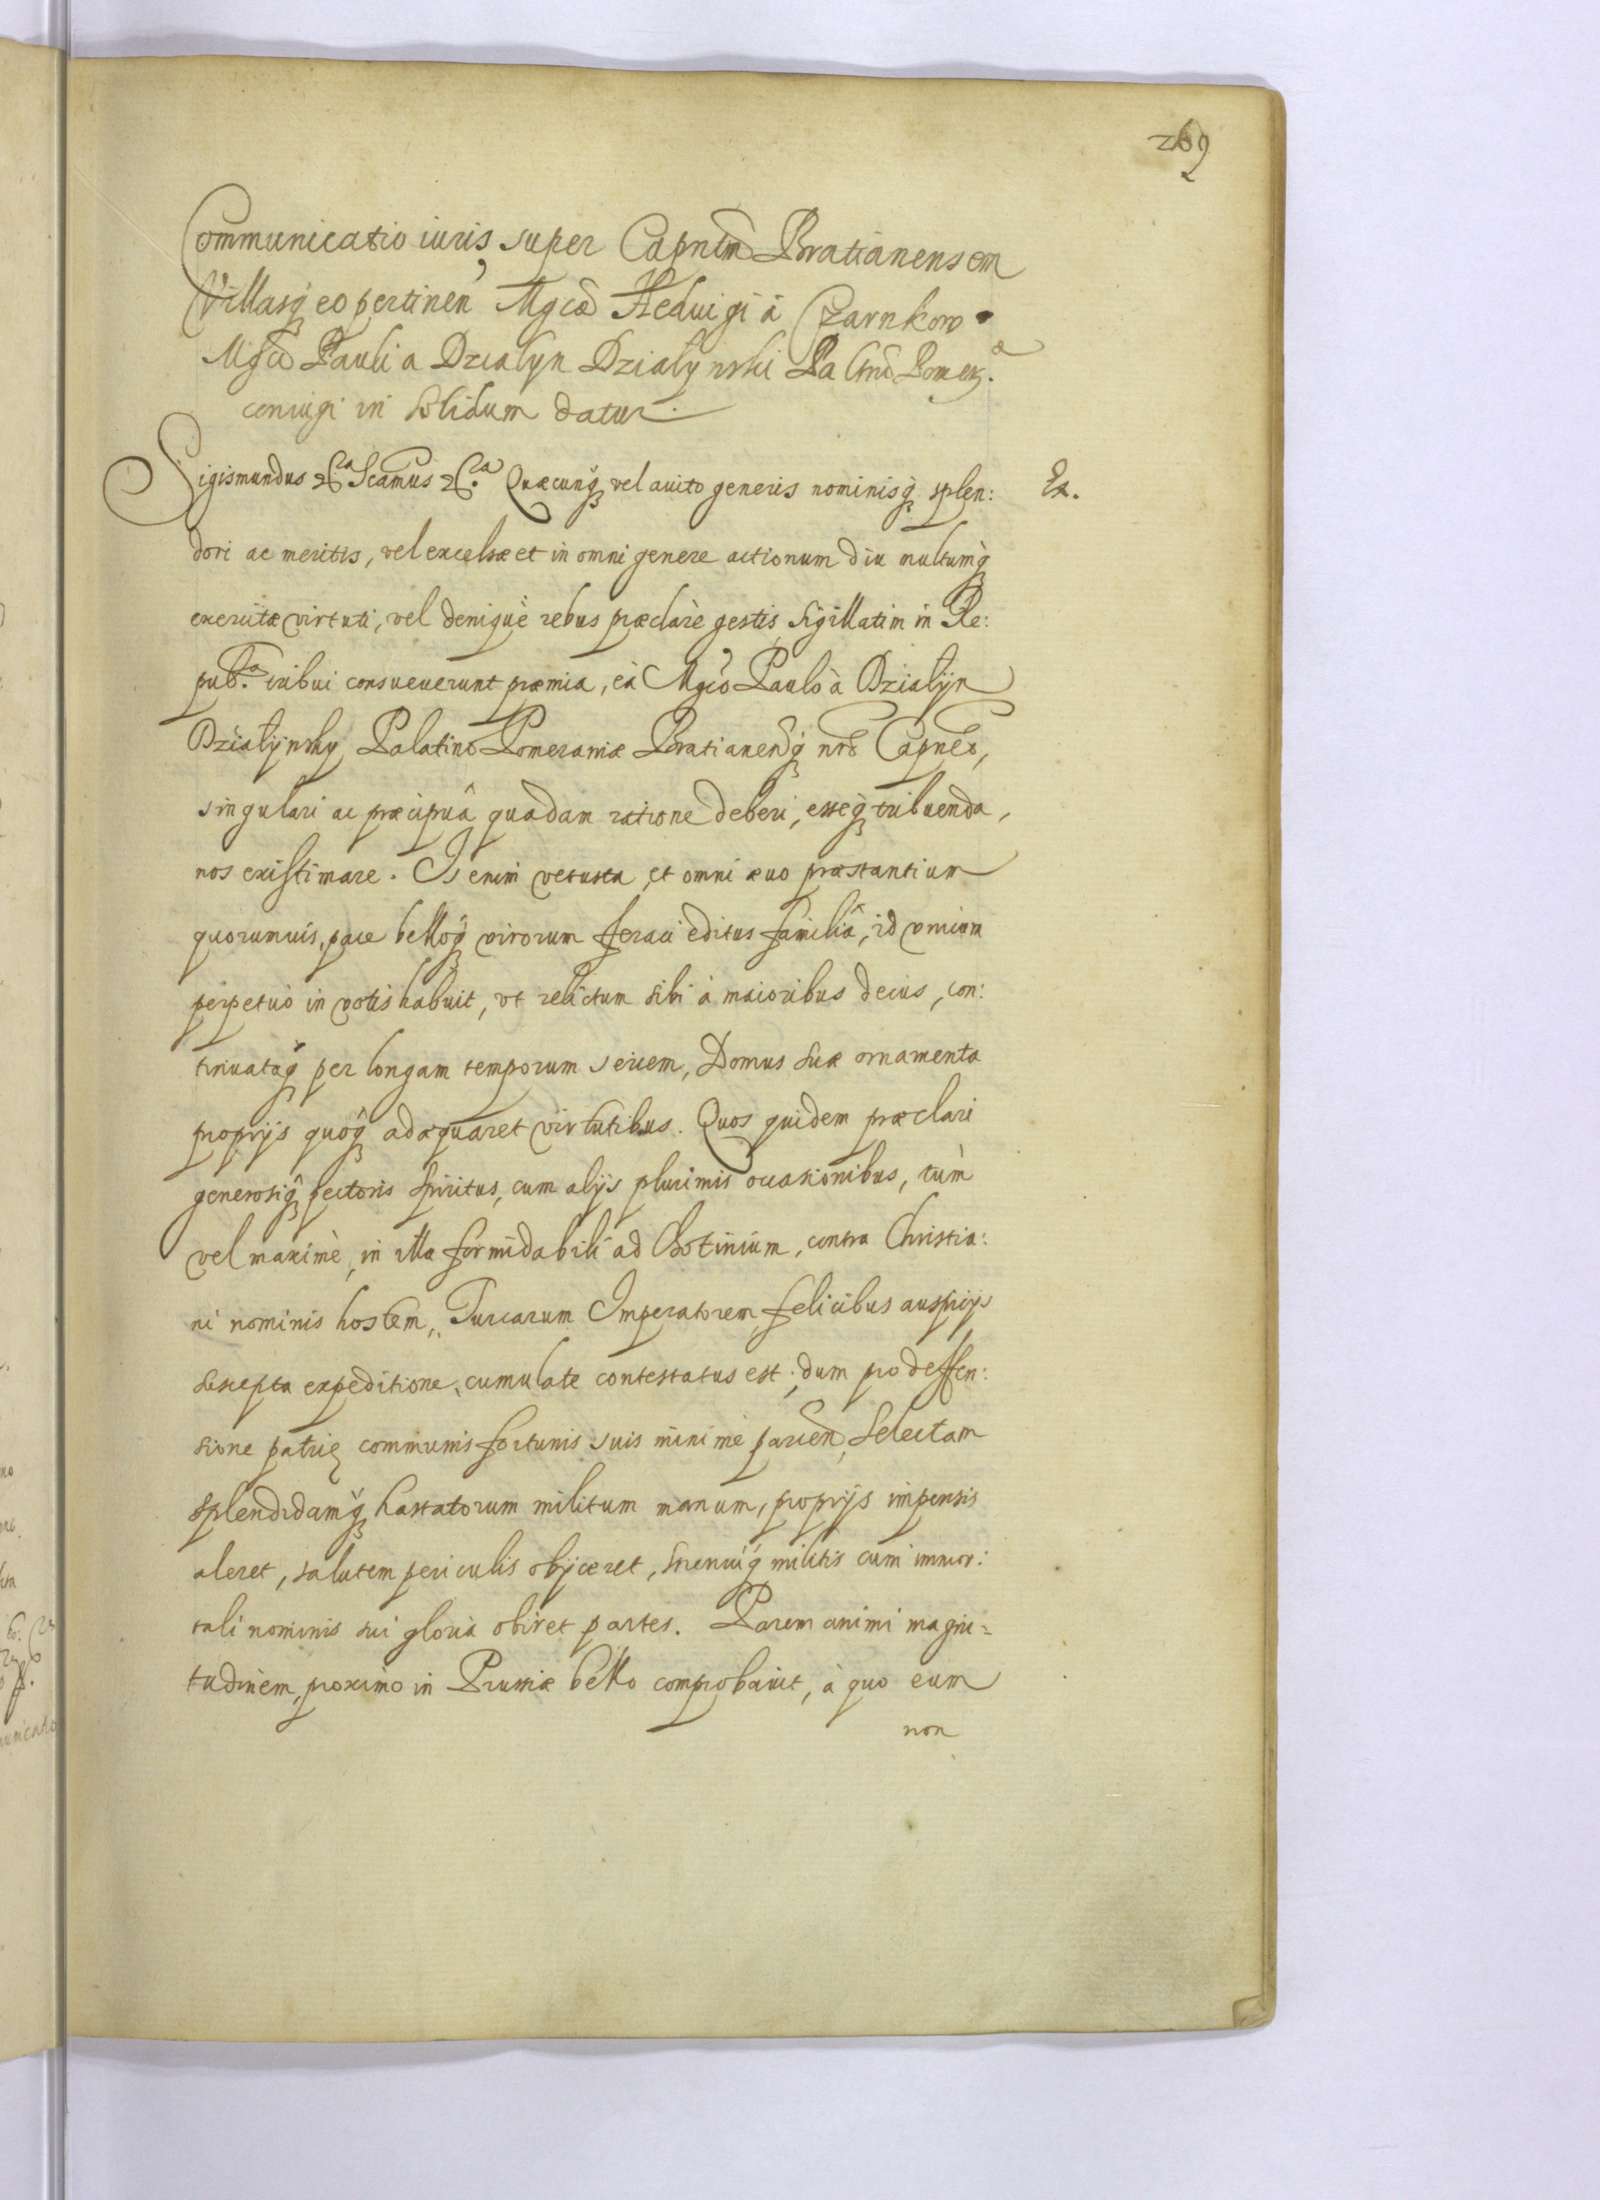 269
Communicatio iuris super Capntũ Bratianensem
Villasq̃ eo pertinen̄ Mgcæ Heduigi à Czarnkow
Mgci Pauli a Dzialyn Dzialynski Palni Pomer.
coniugi in solidum datur.
Sigismundus &ca Scamus &ca. Quæcunq̃ vel auito generis nominisq̃ splen:
Ex.
dori ac meritis, vel excelsæ et in omni genere actionum diu multumq̃
exercitæ virtuti, vel deniquè rebus præclarè gestis, sigillatim in Re:
pub.ca tribui consueuerunt præmia, eà Mgco Paulo à Dzialyn
Dzialynsky Palatino Pomeraniæ Bratianenq̃ nro Capneo,
singulari ac præcipuâ quadam ratione deberi, esseq̃ tribuenda,
nos existimare. Is enim vetusta et omni æuo præstantium
quorumuis, pace belloq̃ virorum feraci editus familiâ, id vnicum
perpetuò in votis habuit, vt relictum sibi à maioribus decus, con:
tinuataq̃ per longam temporum seriem, Domus suæ ornamenta
proprijs quoq̃ adæquaret virtutibus. Quos quidem præclari
generosiq̃ pectoris spiritus, cum alijs plurimis occasionibus, tùm
vel maximè, in illa formidabili ad Chotinium, contra Christia:
ni nominis hostem, Turcarum Imperatorem felicibus auspicijs
suscepta expeditione, cumulate contestatus est; dum pro deffen:
sione patrię communis fortunis suis minimè parcen̄, selectam
splendidamq̃ hastatorum militum manum, proprijs impensis
aleret, salutem periculis obijceret, strenuiq̃ militis cum immor:
tali nominis sui glorià obiret partes. Parem animi magni=
tudinem, proximo in Prussiæ bello comprobauit, à quo eum
non